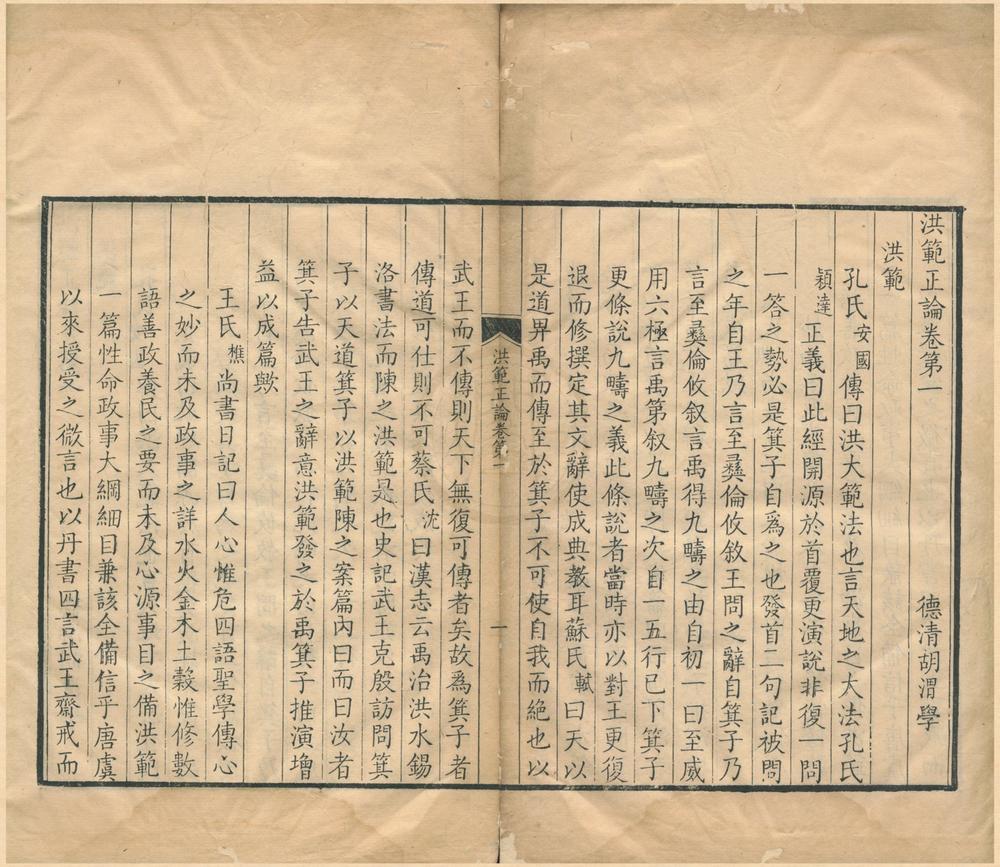 洪範正論卷第一
德清胡渭學
洪範
孔氏安國傳曰洪大範法也言天地之大法孔氏
穎達正義曰此經開源於首覆更演說非復一問
一答之勢必是箕子自爲之也發首二句記被問
之年自王乃言至彝倫攸敘王問之辭自箕子乃
言至彝倫攸叙言禹得九疇之由自初一曰至威
用六極言禹第叙九疇之次自一五行已下箕子
更條說九疇之義此條說者當時亦以對王更復
退而修撰定其文辭使成典教耳蘇氏軾曰天以
是道畀禹而傳至於箕子不可使自我而絕也以
洪範正論卷第一
一
武王而不傳則天下無復可傳者矣故爲箕子者
傳道可仕則不可蔡氏沈曰漢志云禹治洪水錫
洛書法而陳之洪範是也史記武王克殷訪問箕
子以天道箕子以洪範陳之案篇內曰而曰汝者
箕子告武王之辭意洪範發之於禹箕子推演增
益以成篇歟
王氏樵尚書日記曰人心惟危四語聖學傳心
之妙而未及政事之詳水火金木土穀惟修數
語善政養民之要而未及心源事目之備洪範
一篇性命政事大綱細目兼該全備信乎唐虞
以來授受之微言也以丹書四言武王齋戒而